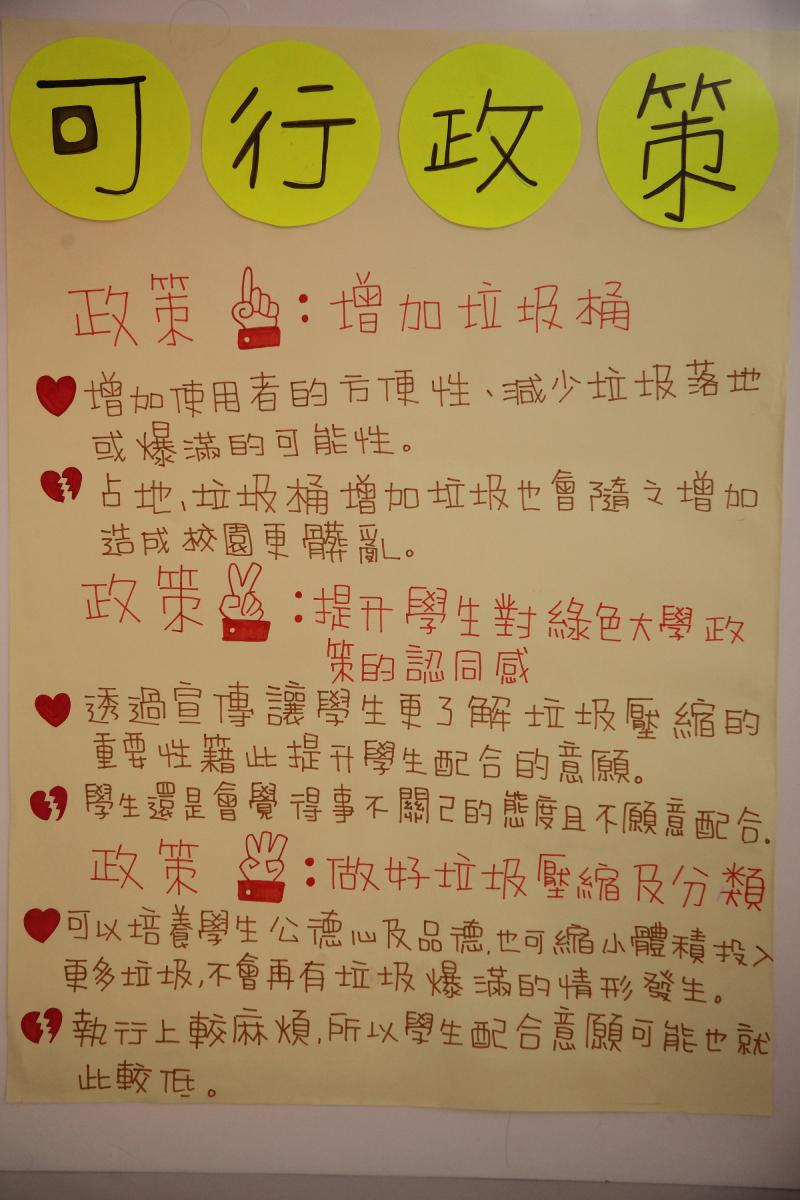 可行政策
政策：增加垃圾桶
增加使用者的方便性、減少垃圾落地
或爆滿的可能性。
占地、垃圾桶增加垃圾也會隨之增加
造成校園更髒亂。
政策：提升學生對綠色大學政
策的認同感
透過宣傳讓學生更了解垃圾壓縮的
重要性藉此提升學生配合的意願。
學生還是會覺得事不關己的態度且不願意配合.
政策：做好垃圾壓縮及分類
可以培養學生公德心及品德,也可縮小體積投入
更多垃圾,不會再有垃圾爆滿的情形發生。
執行上較麻煩,所以學生配合意願可能也就
此較低。